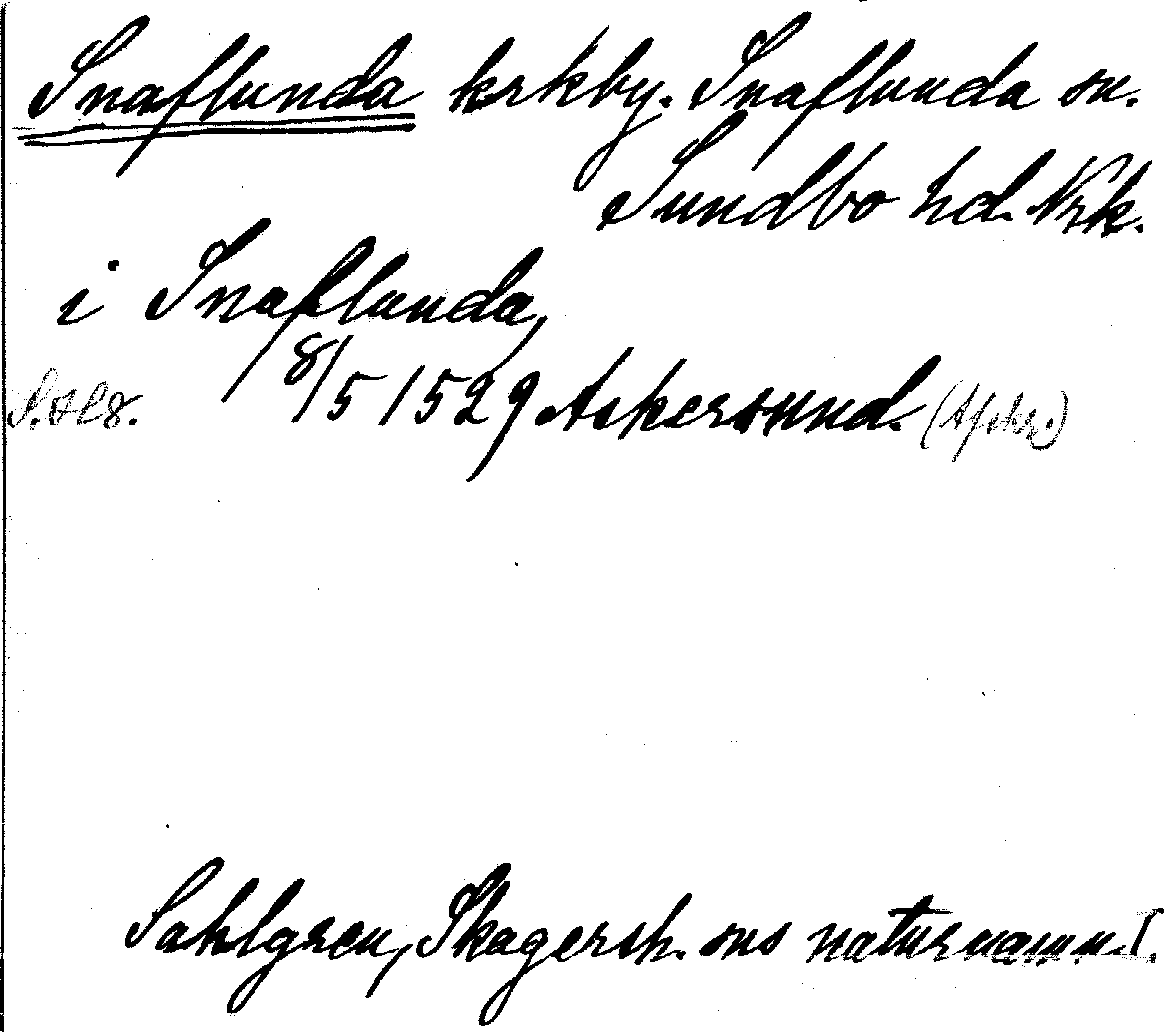 Snaflunda krkby. Snaflunda sn.
Sundbo hd. Nrk.
i Snaflunda,
8/5 1529 Askersund. (Afskr.)
Sahlgren, Skagersh. sns naturnamn. I.